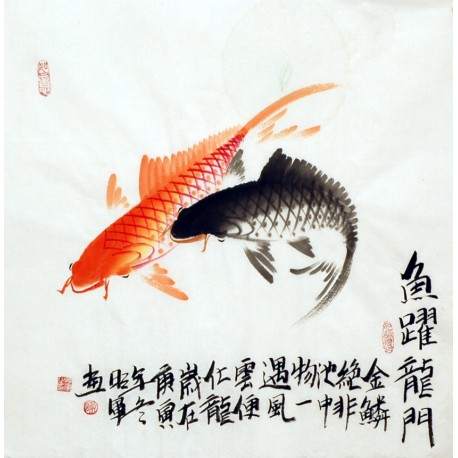 魚躍龍門
金鱗
絕非
池中
物一
遇風
雲便
化龍
歲在
庚寅
年冬
昭軍
畫